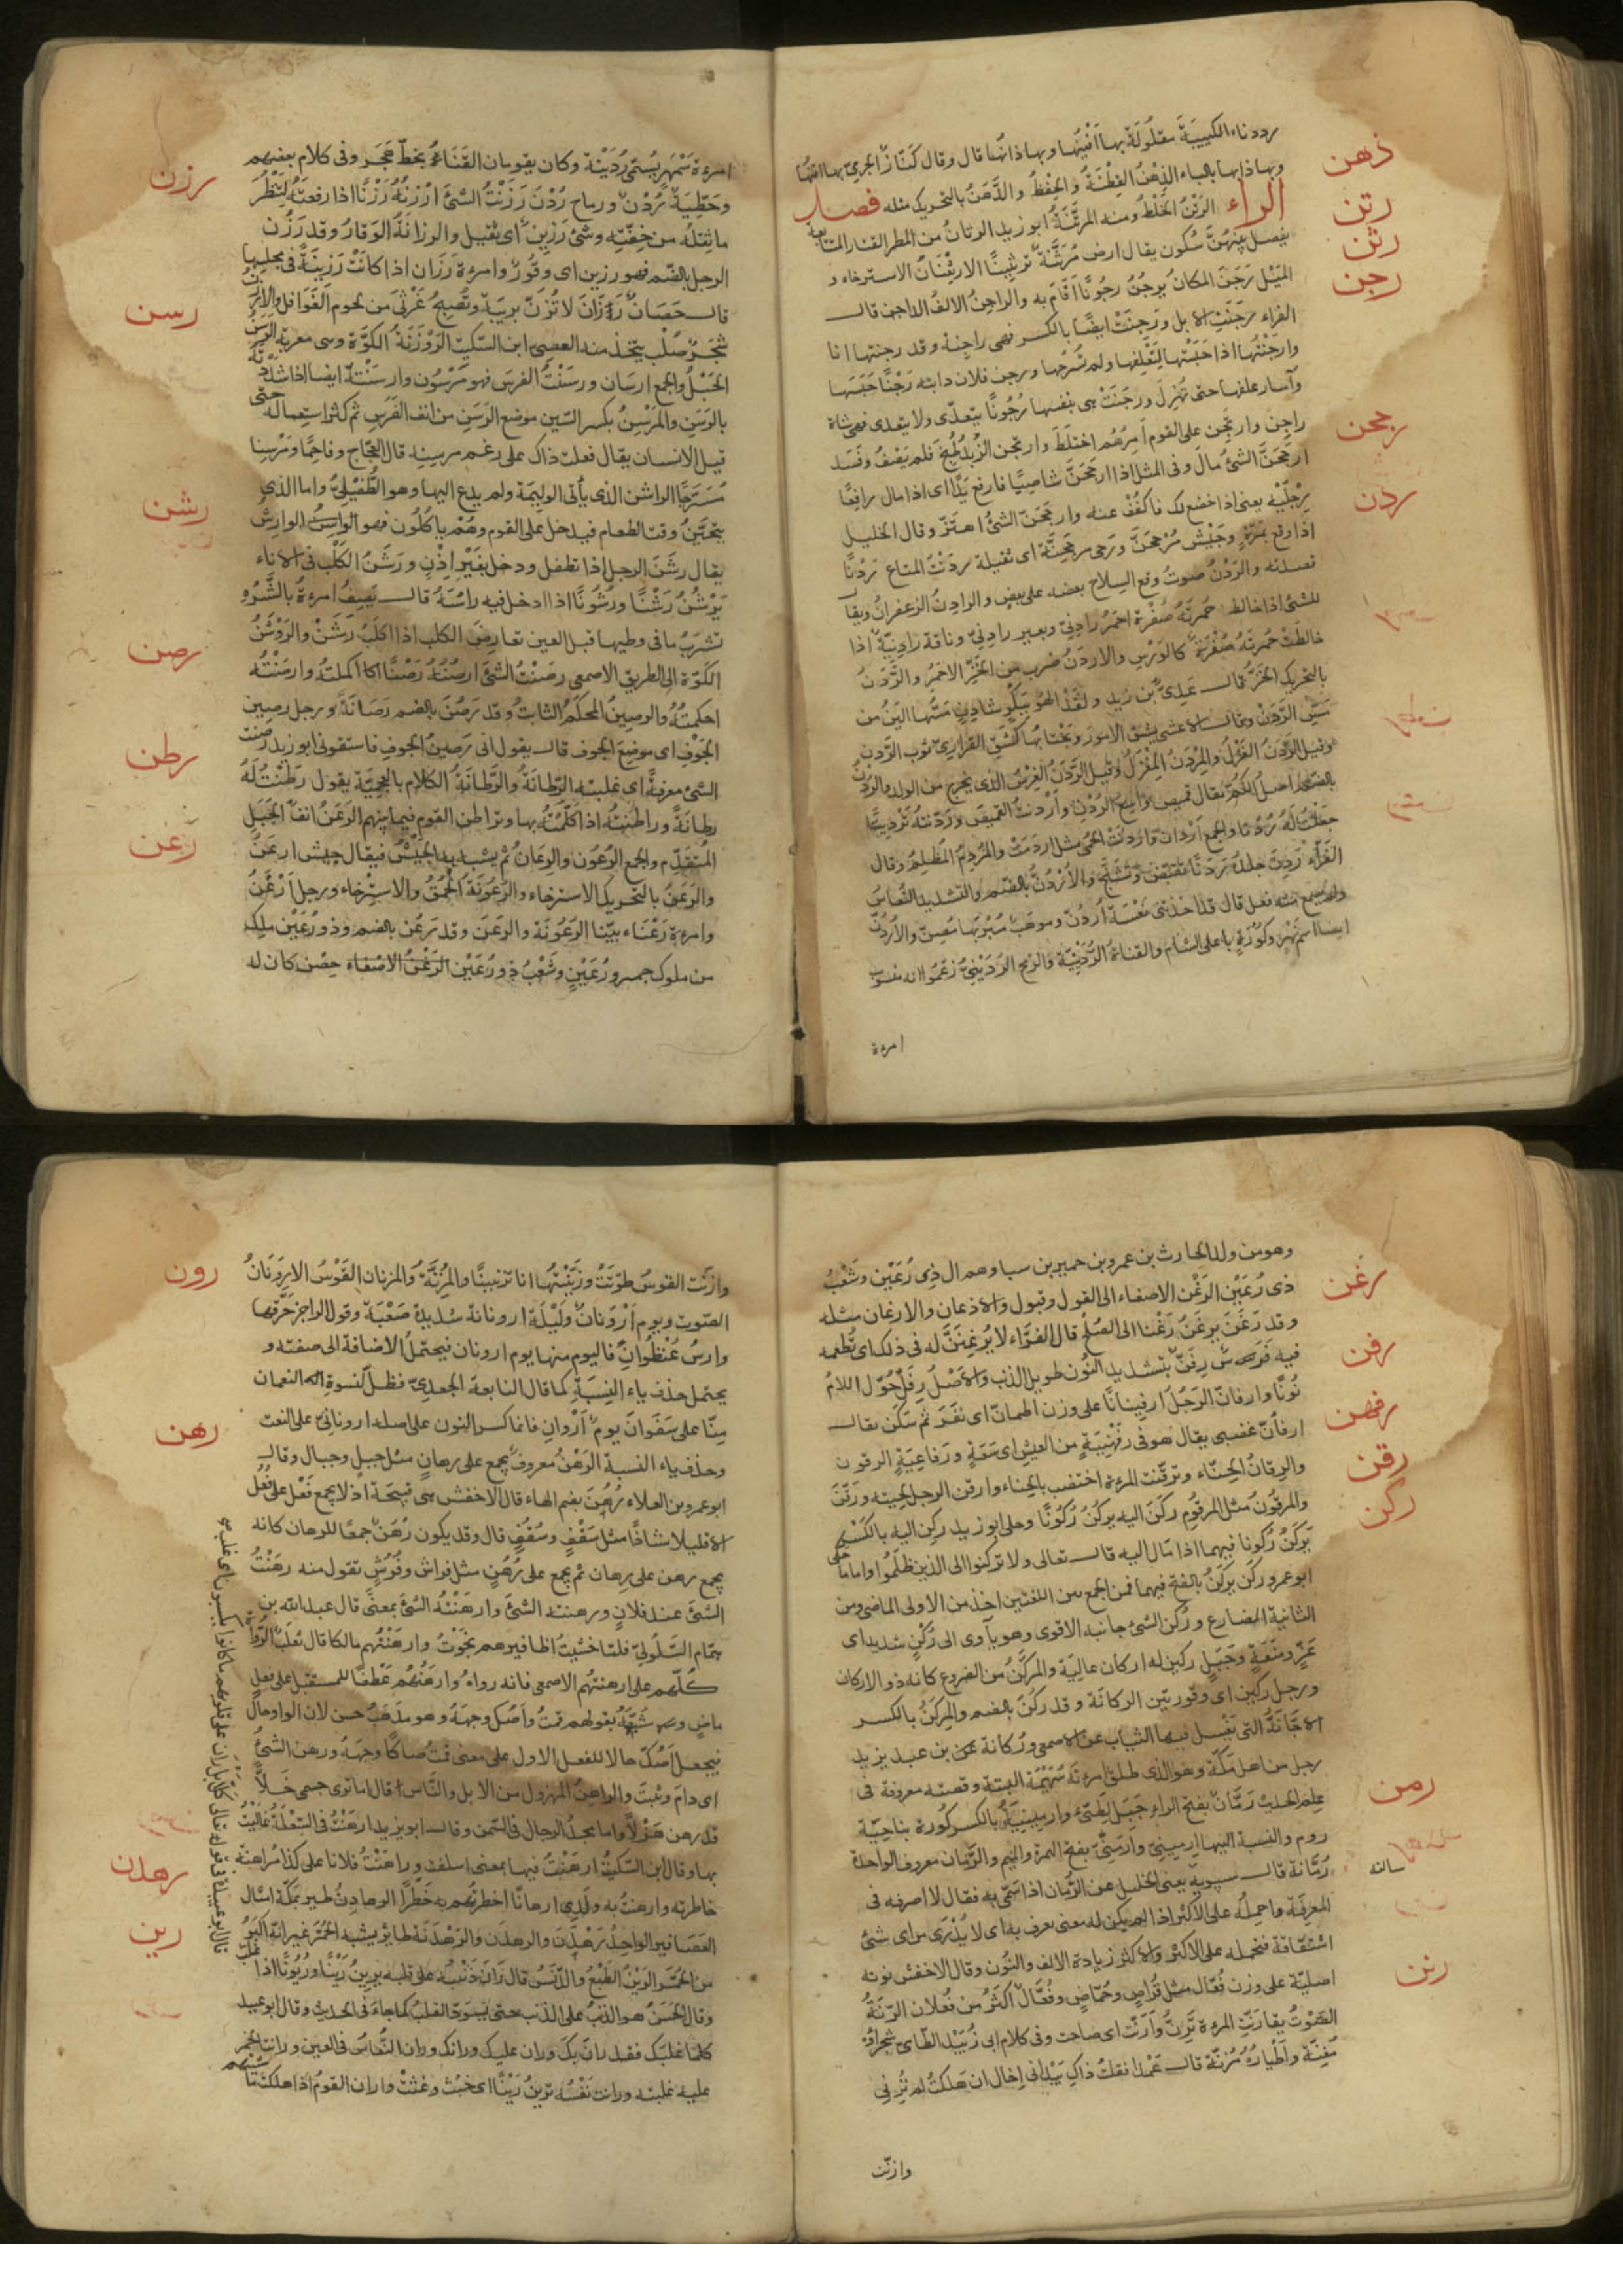 رددناء الكتيبة مفلولة بها افنها وبها ذانها قال وقال كناز الجرمي بها افنها
ذهن
وبها ذابها بالباء الذهن الفطنة والحفظ والذهن بالتحريك مثله فصل
الراء الرتن الخلط ومنه المرتنة ابو زيد الرثان من المطر القطار المتتابعة
رتن
رثن
يفصل بينهن سكون يقال ارض مرثنة ترثينا الارثنان الاسترخاء و
رجن
الميل رجن المكان يرجن رجونا اقام به والراجن الالف الداجن قال
الفراء رجنت الابل ورجنت ايضا بالكسر فهى راجنة وقد رجنتها انا
وارجنتها اذا حبستها لتعلفها ولم تسرحها ورجن فلان دابته رجنا حبسها
وآسار علفها حتى تهزل ورجنت هى بنفسها رجونا يتعدى ولا يتعدى فهى شاة
راجن وارتجن على القوم امرهم اختلط وارتجن الزبد طبخ فلم يصف وفسد
رجحن
ارجحن الشئ مال وفى المثل اذا ارجحن شاصيا فارفع يدا اى اذا مال رافعا
رجليه يعنى اذا خضع لك فاكفف عنه وارجحن الشئ اهتز وقال الخليل
ردن
اذا وقع بمرة وجيش مرجحن ورحى مرجحنة اى ثقيلة ردنت المتاع ردنا
نضدته والردن صوت وقع السلاح بعضه على بعض والرادن الزعفران ويقا
للشئ اذا خالط حمرته صفرة احمر رادنى وبعير رادنى وناقة رادنية اذا
خالطت حمرته صفرة كالورس والاردن ضرب من الخز الاحمر والردن
بالتحريك الخز قال عدى بن زيد ولقد الهو ببكر شادن مسها الين من
مس الردن وقال الاعشى يشق الامور ويجتابها كشق القرارى ثوب الردن
وقيل الردن الغزل والمردن المغزل وقيل الردن الغرس الذى يخرج مع الولد والردن
بالضم اصل الكم يقال قميص واسع الردن واردنت القميص وردنته تردينا
جعلت له ردنا والجمع اردان واردنت الحمى مثل اردمت والمردن المظلم وقال
الفراء ردن جلده ردنا تقبض وتشنج والاردن بالضم والتشديد النعاس
ولم يسمع منه فعل قال قد اخذتنى نعسة اردن وموهب مبز بها مصن والاردن
ايضا اسم نهر وكورة باعلى الشام والقناة الردينية والرمح الردينى زعموا انه منسوب
امرءة
امرءة سمهر يسمى ردينة وكان يقومان القناة بخط هجر وفى كلام بعضهم
رزن
وخطية ردن ورماح ردن رزنت الشئ ارزنه رزنا اذا رفعته لتنظر
ما ثقله من خفته وشئ رزين اى ثقيل والرزانة الوقار وقد رزن
الرجل بالضم فهو رزين اى وقور وامرءة رزان اذا كانت رزينة فى مجلسها
رسن
قال حصان رزان لا تزن بريبة وتصبح غرثى من لحوم الغوافل والارزن
شجر صلب يتخذ منه العصى ابن السكيت الروزنة الكوة وهى معربة الرسن
الحبل والجمع ارسان ورسنت الفرس فهو مرسون وارسنته ايضا اذا شددته
بالرسن والمرسن بكسر السين موضع الرسن من انف الفرس ثم كثر استعماله حتى
قيل الانسان يقال فعلت ذاك على رغم مرسنه قال العجاج وفاحما ومرسنا
رشن
مسرجا الراشن الذى يأتى الوليمة ولم يدع اليها وهو الطفيلى واما الذى
يتحين وقت الطعام فيدخل على القوم وهم ياكلون فهو الوارش
يقال رشن الرجل اذا تطفل ودخل بغير اذن ورشن الكلب فى الاناء
يرشن رشنا ورشونا اذا ادخل فيه راسه قال يصف امرءة بالشره
تشرب ما فى وطبها قبل العين تعارض الكلب اذا الكلب رشن والروشن
رصن
الكوة الى الطريق الاصمعى رصنت الشئ ارصنه رصنا اكملته وارصنته
احكمته والرصين المحكم الثابت وقد رصن بالضم رصانة ورجل رصين
الجوف اى موضع الجوف قال يقول انى رصين الجوف فاسقونى ابو زيد رصنت
رطن
الشئ معرفة اى علمته الرطانة والرطانة الكلام بالعجمية يقول رطنت له
رطانة وراطنته اذا كلمته بها وتراطن القوم فيما بينهم الرعن انف الجبل
رعن
المتقدم والجمع الرعون والرعان ثم يشبه به الجيش فيقال جيش ارعن
والرعن بالتحريك الاسترخاء والرعونة الحمق والاسترخاء ورجل ارعن
وامرءة رعناء بينا الرعونة والرعن وقد رعن بالضم وذو رعين ملك
من ملوك حمير ورعين وشعب ذو رعين الرغن الاصغاء حصن كان له
وهو من ولد الحارث بن عمرو بن حمير بن سبا وهم ال ذى رعين وشعب
رغن
ذى رعين الرغن الاصغاء الى القول وقبول والاذعان والارغان مثله
وقد رغن يرغن رغنا الى الصلح قال الفراء لا يرغنن له فى ذلك اى تطعمه
رفن
فيه فرس رفن بتشديد النون طويل الذنب والاصل رفل حول اللام
نونا وارفان الرجل ارفينانا على وزن اطمان اى نفر ثم سكن يقال
رفهن
ارفأن غضبى يقال هو فى رفهنية من العيش اى سعة ورفاغية الرقون
رقن
والرقان الحناء وترقنت المرءة اختضبت بالحناء وارقن الرجل لحيته ورقن
ركن
والمرقون مثل المرقوم ركن اليه يركن ركونا وحكى ابو زيد ركن اليه بالكسر
يركن ركونا فيهما اذا مال اليه قال تعالى ولا تركنوا الى الذين ظلموا واما ما حكى
ابو عمرو ركن يركن بالفتح فيهما فمن الجمع بين اللغتين اخذ من الاولى الماضى ومن
الثانية المضارع وركن الشئ جانبه الاقوى وهو يأوى الى ركن شديد اى
عز ومنعة وجبل ركين له اركان عالية والمركن من الضروع كانه ذو الاركان
ورجل ركين اى وقور بين الركانة وقد ركن بالضم والمركن بالكسر
الاجانة التى يغسل فيها الثياب عن الاصمعى وركانة بن عبد يزيد
رجل من اهل مكة وهو الذى طلق امرءته سهيمة البتة وقصته معروفة فى
رمن
علم الحديث رمان بفتح الراء جبل لطيئ وارمينية بالكسر كورة بناحية
روم والنسبة اليها ارمينى وارمنى بفتح الهمزة والميم والرمان معروف الواحدة
رمانة قال سيبويه يعنى الخليل عن الرمان اذا سمى به فقال لا اصرفه فى
سالته
المعرفة واحمله على الاكثر اذا لم يكن له معنى يعرف به اى لا يدرى من اى شئ
اشتقاقه فنحمله على الاكثر والاكثر زيادة الالف والنون وقال الاخفش نونه
رنن
اصلية على وزن فعال مثل قراص وحماض وفعال اكثر من فعلان الرنة
الصوت يقا رنت المرءة ترن وارنت اى صاحت وفى كلام ابى زبيد الطائى شجراؤه
مغنة واطياره مرنة قال عمدا فعلت ذاك بيد انى اخال ان هلكت لم ترنى
وارنت
وارنت القوس صوتت ورننتها انا ترنينا والمرنة والمرنان القوس الارونان
رون
الصوت ويوم ارونان وليلة ارونانة شديدة صعبة وقول الراجز حرقها
وارس عنظوان فاليوم منها يوم ارونان فيحتمل الاضافة الى صفته و
يحتمل حذف ياء النسبة كما قال النابغة الجعدى فظل لنسوة النعمان
رهن
منا على سفوان يوم اروان فانما كسر النون على اصله ارونانى على النعت
وحذف ياء النسبة الرهن معروف يجمع على رهان مثل حبل وحبال وقال
ابو عمرو بن العلاء رهن بضم الهاء قال الاخفش هى قبيحة اذ لا يجمع فعل على فعل
الا قليلا شاذا مثل سقف وسقف قال وقد يكون رهن جمعا للرهان كانه
يجمع رهن على رهان ثم يجمع على رهن مثل فراش وفرش تقول منه رهنت
الشئ عند فلان ورهنته الشئ وارهنته الشئ بمعنى قال عبد الله بن
همام السلولى فلما خشيت اظافيرهم نجوت وارهنتهم مالكا قال ثعلب الرواة
كلهم على ارهنتهم الاصمعى فانه رواه وارهنهم عطفا للمستقبل على فعل
ماض وشبهه بقولهم قمت واصك وجهه وهو مذهب حسن لان الواو حال
فيجعل اصك حالا للفعل الاول على معنى قمت صاكا وجهه ورهن الشئ
اى دام وثبت والراهن المهزول من الابل والناس قال اما ترى جسمى خلا
قد رهن هزلا وما مجد الرجال فى السمن وقال ابو زيد ارهنت فى السلعة غاليت
بها وقال ابن السكيت ارهنت فيها بمعنى اسلفت وراهنت فلانا على كذا مراهنة
رهدن
خاطرته وارهنت به ولدى ارهانا اخطرتهم به خطرا الرهادن طير بمكة امثال
العصافير الواحد رهدن والرهدن والرهدنة طائر يشبه الحمر غير انه اكبر
رين
من الحمر الرين الطبع والدنس قال ران ذنبه على قلبه يرين رينا وريونا اذا غلب
وقال الحسن هو الذنب على الذنب حتى يسود القلب كما جاء فى الحديث وقال ابو عبيد
كلما غلبك فقد ران بك وران عليك ورانك وران النعاس فى العين ورانت الخمر
عليه غلبته ورانت نفسه ترين رينا اى خبث وغثت واران القوم اذا هلكت ماشيتهم
قال ابو عبيدة فى قوله تعالى كلا بل ران على قلوبهم ما كانوا يكسبون اى غلب